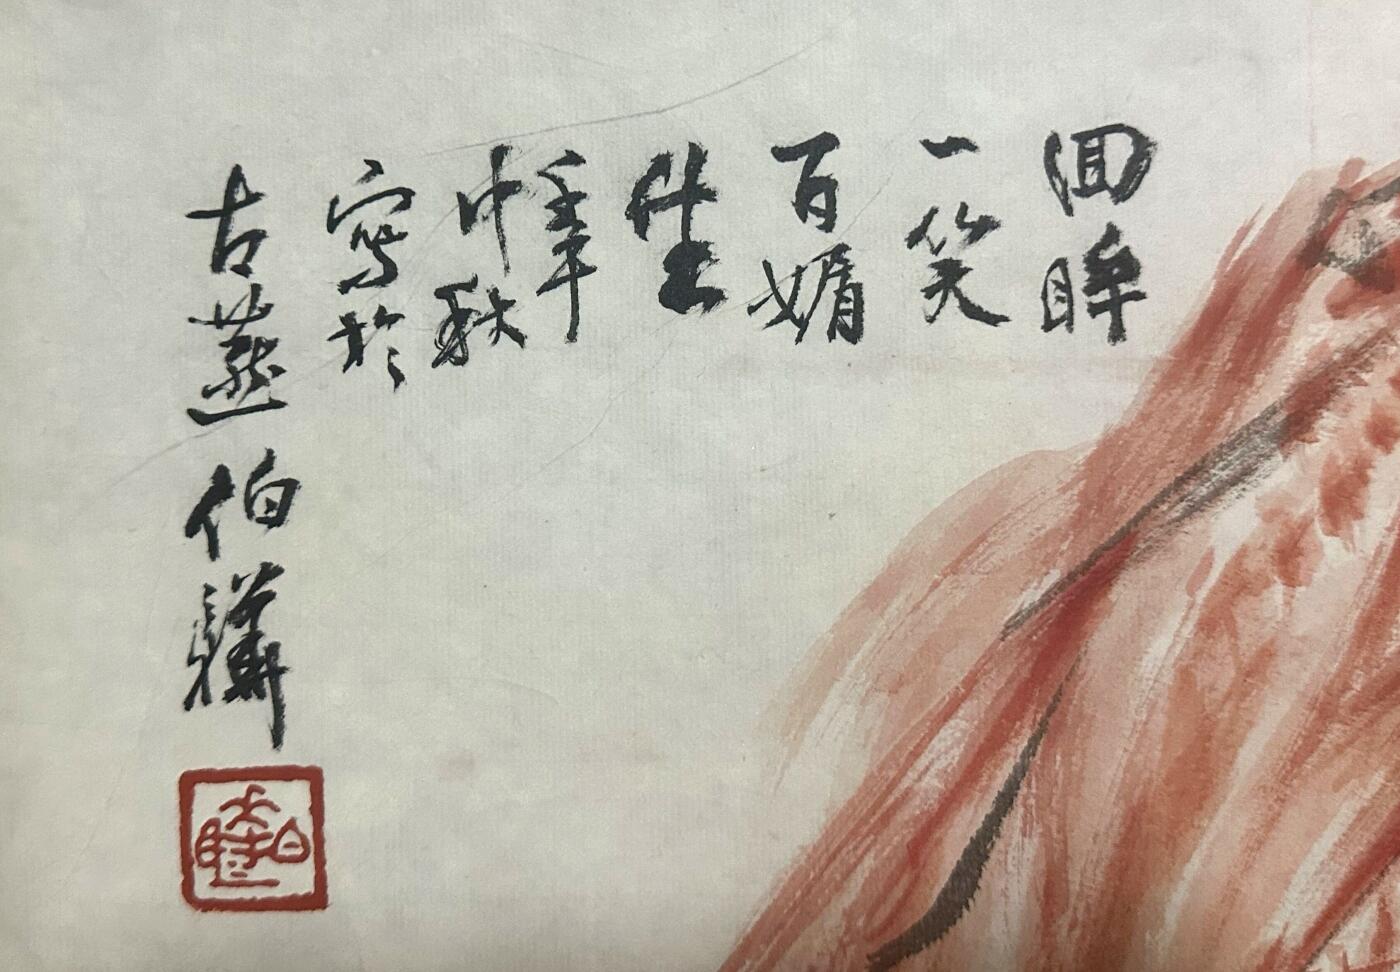 回眸
一笑
百媚
生
年
中秋
寫於
古燕伯驊